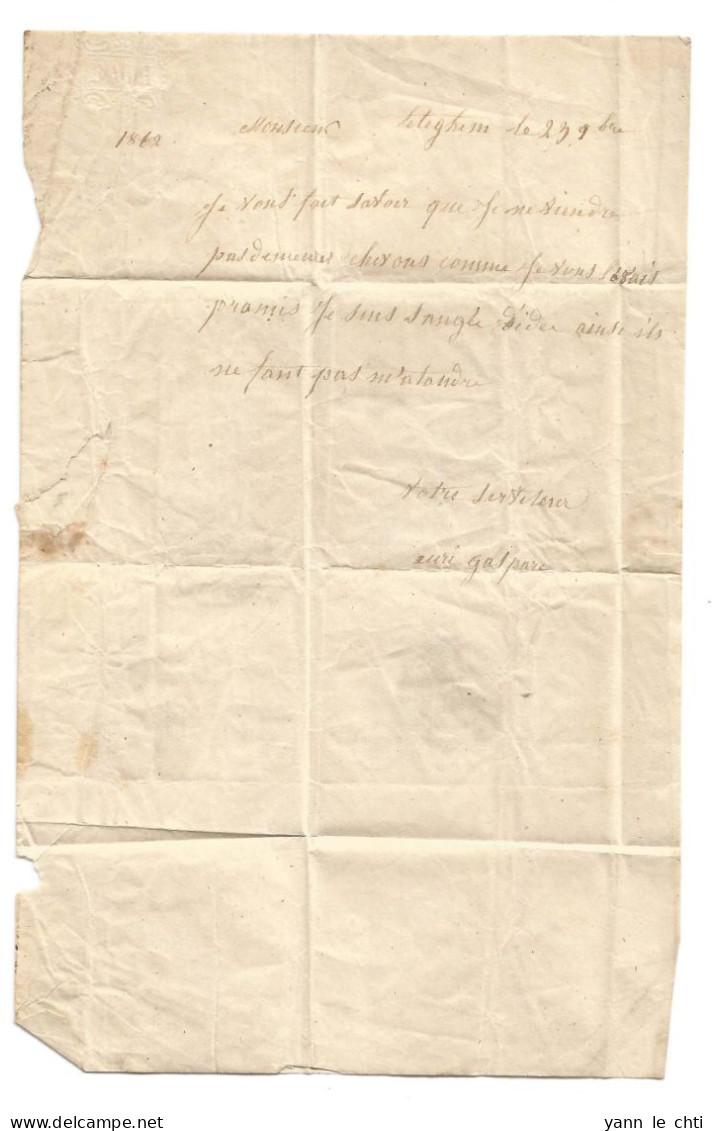 1862 Monsieur Leteghem le 23 9bre
Je vous fait savoir que Je ne viendre
pas demeurer chevous comme Je vous l'avais
promis Je suis sangle d'idee ainsi ils
ne faut pas m'atandre
votre serviteur
euri gaspare
yann le chti